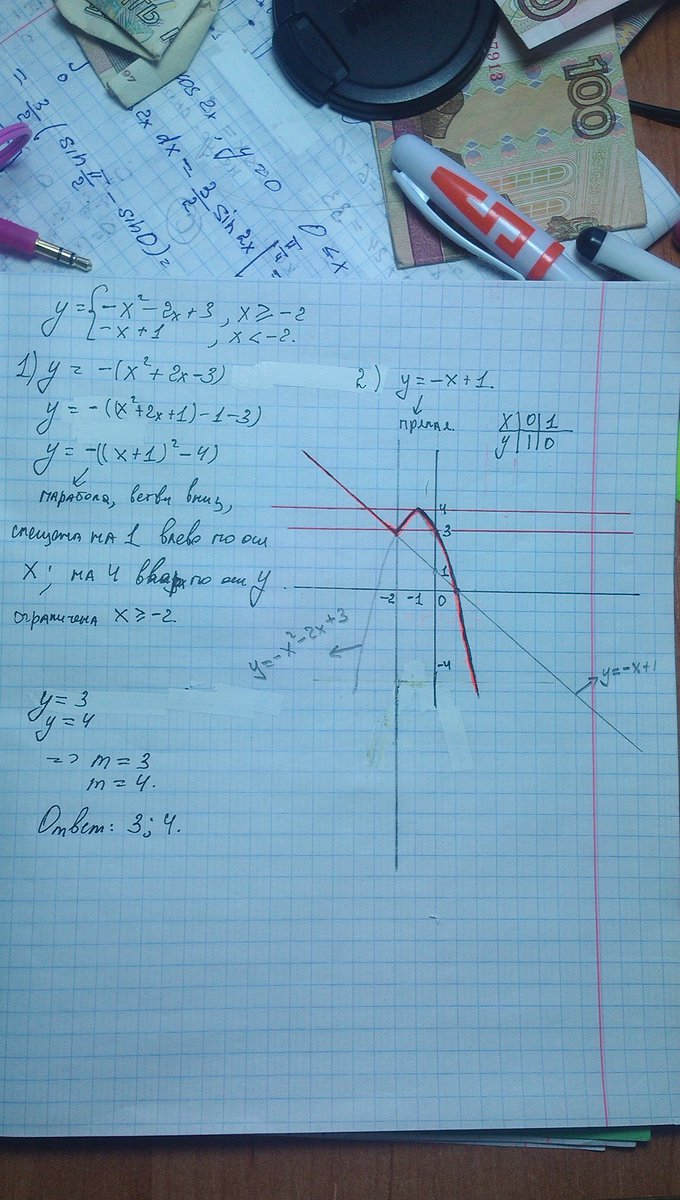 cos 2x, y=0 0<x
2x dx = 3/2 sin 2x | π/4 =
3/2 ( sin π/2 − sin 0 ) =
100
7913
y = { −x² −2x+3 , x ≥ −2
−x+1 , x < −2.
1) y = −(x²+2x−3)
y = −((x²+2x+1)−1−3)
y = −((x+1)²−4)
парабола, ветви вниз,
смещена на 1 влево по оси
X; на 4 вверх по оси y
ограничена x ≥ −2.
y = 3
y = 4
=> m = 3
m = 4.
Ответ: 3; 4.
2) y = −x+1.
прямая
x | 0 | 1
y | 1 | 0
4
3
1
−2 −1 0
−4
y=−x²−2x+3
y=−x+1